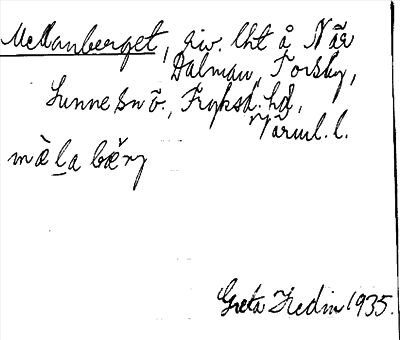 Mellanberget, giv. lht å När
Dalman, Torsby,
Sunne sn ö., Fryksd. hd,
Värml. l.
mὲḷa bæ̌rj
Greta Hedin 1935.